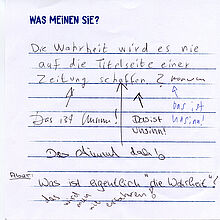 WAS MEINEN SIE?
Die Wahrheit wird es nie
auf die Titelseite einer
Zeitung schaffen ? warum
Das ist
Unsinn!
Das ist Unsinn!
Das ist
Unsinn!
Das stimmt doch!
Aber:
Was ist eigentlich "die Wahrheit"?